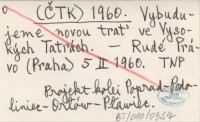 (ČTK) 1960. Vybudu-
jeme novou trať ve Vyso-
kých Tatrách. — Rudé Prá-
vo (Praha) 5 II 1960. TNP
Projekt kolej Poprad-Podo-
liniec-Orłów-Pławiec.